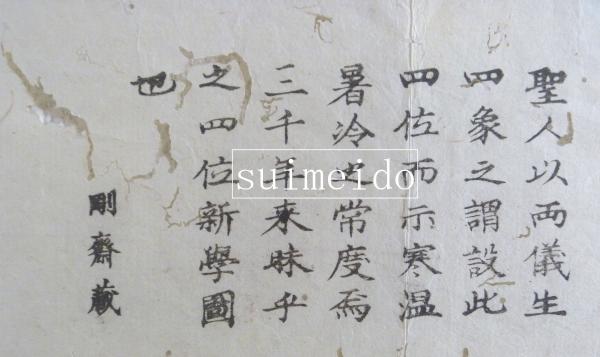 聖人以両儀生
四象之謂設此
四位而示寒温
暑冷之常度焉
三千年来昧乎
之四位新學圖
也
剛齋蔵
suimeido